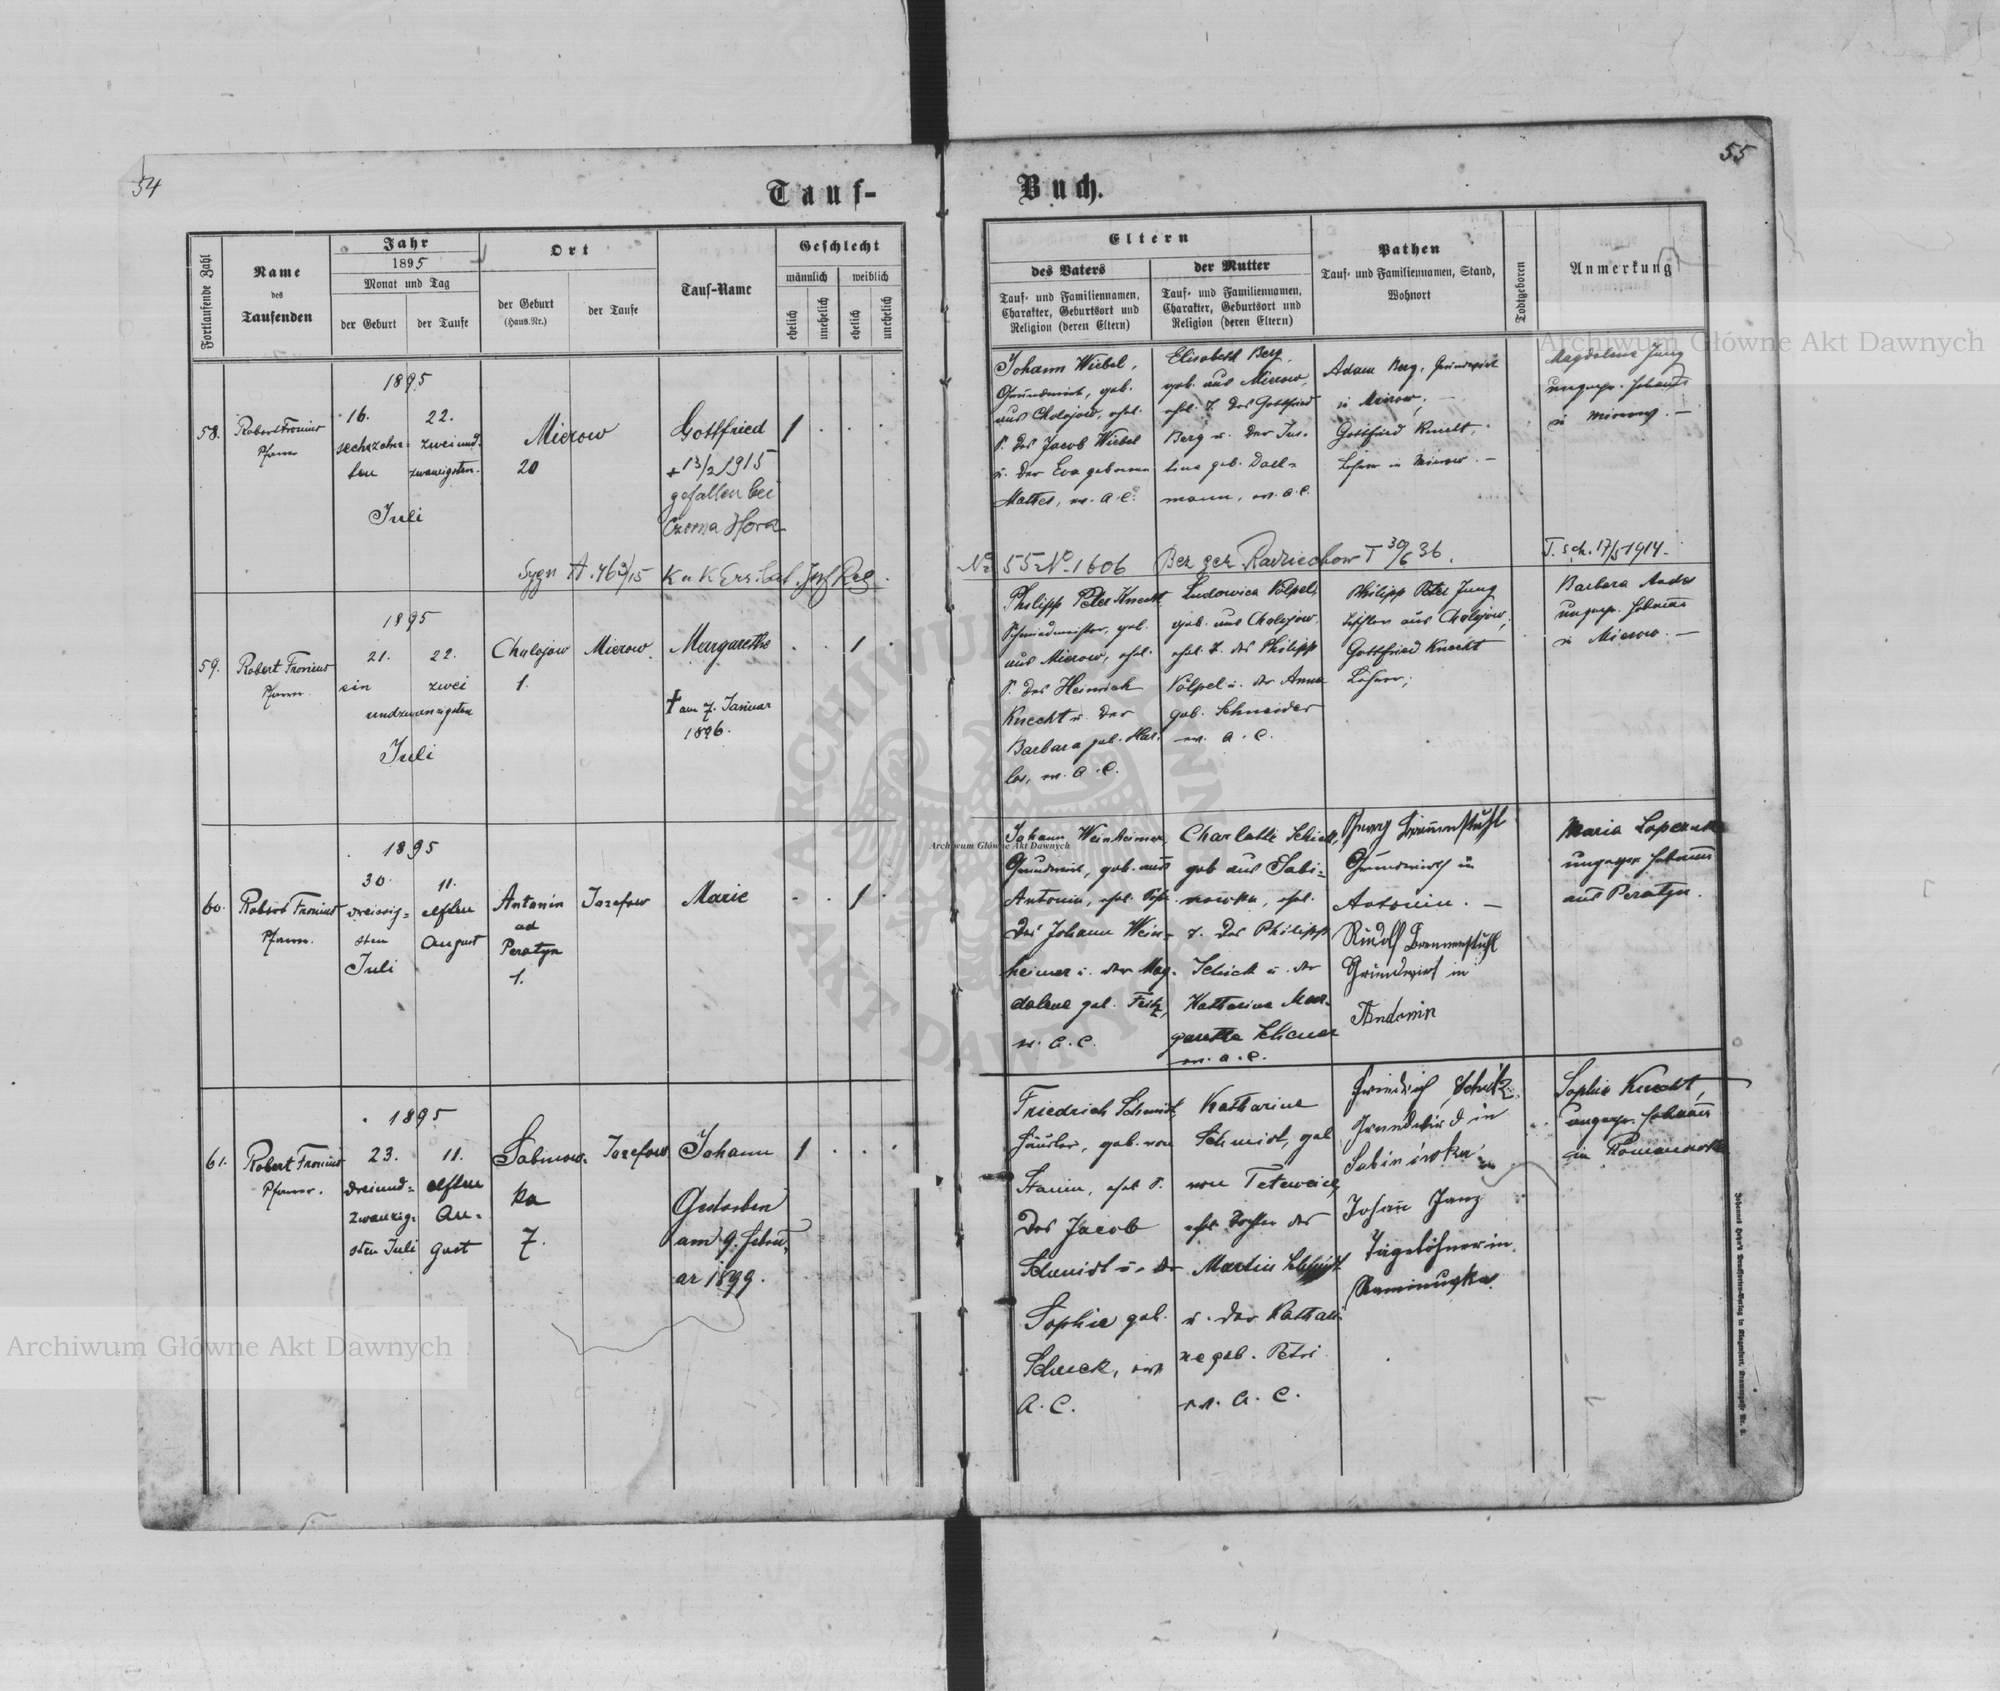 54
55
Tauf-
Buch.
Fortlaufende Zahl
Name
des
Taufenden
Jahr
1895
Monat und Tag
der Geburt
der Taufe
Ort
der Geburt
(Haus-Nr.)
der Taufe
Tauf-Name
Geschlecht
männlich
weiblich
ehelich
unehelich
ehelich
unehelich
Eltern
des Vaters
Tauf- und Familiennamen,
Charakter, Geburtsort und
Religion (deren Eltern)
der Mutter
Tauf- und Familiennamen,
Charakter, Geburtsort und
Religion (deren Eltern)
Pathen
Tauf- und Familiennamen, Stand,
Wohnort
Todtgeboren
Anmerkung
58.
Robert Fronius
Pfarrer
1895
16.
sechszehn-
ten
22.
zweiund-
zwanzigsten
Juli
Mierow
20
Gottfried
+ 13/2 1915
gefallen bei
Czerna Hora
1
Johann Wiebel,
Grundwirt, geb.
aus Cholojow, ehel.
S. des Jacob Wiebel
u. der Eva geborene
Mathes, ev. A. C.
Elisabeth Berg,
geb. aus Mierow,
ehel. T. des Gottfried
Berg u. der Jus-
tina geb. Dael-
mann, ev. A. C.
Adam Berg, Grundwirt
in Mierow,
Gottfried Knecht,
Lehrer in Mierow. —
Magdalena Jung
ungepr. Hebamme
in Mierow. —
T. sch. 17/5 1914.
No 55 No 1606 Bez ger. Radziechow T 30/6 36.
59.
Robert Fronius
Pfarrer
1895
21.
ein
22.
zwei
undzwanzigsten
Juli
Cholojow
1.
Mierow
Margarethe
† am 7. Januar
1896.
1
Philipp Peter Knecht
Schmiedmeister, geb.
aus Mierow, ehel.
S. des Heinrich
Knecht u. der
Barbara geb. Har-
los, ev. A. C.
Ludowica Völpel,
geb. aus Cholojow,
ehel. T. des Philipp
Völpel u. der Anna
geb. Schneider
ev. A. C.
Philipp Peter Jung
Tischler aus Cholojow,
Gottfried Knecht
Lehrer;
Barbara
ungepr. Hebamme
in Mierow. —
60.
Robert Fronius
Pfarrer.
1895
30.
dreissig-
sten
Juli
11.
elften
August
Antonin
ad
Peratyn
1.
Jozefow
Marie
1
Johann Weinheimer,
Grundwirt, geb. aus
Antonin, ehel. Sohn
des Johann Wein-
heimer u. der Mag-
dalene geb. Fritz,
ev. A. C.
Charlotte Schick,
geb aus Sabi-
nowka, ehel.
T. des Philipp
Schick u. der
Katharina Mar-
garetha Scherer
ev. A. C.
Georg Brennenstuhl
Grundwirth in
Antonin. —
Rudolf Brennenstuhl
Grundwirt in
Antonin
Maria
ungepr Hebamme
aus Peratyn.
61.
Robert Fronius
Pfarrer.
1895
23.
dreiund-
zwanzig-
sten Juli
11.
elften
Au-
gust
Sabinow-
ka
7.
Jozefow
Johann
Gestorben
am 9. Febru-
ar 1899.
1
Friedrich Schmidt,
Häusler, geb. von
Stanin, ehel S.
des Jacob
Schmidt u. der
Sophie geb.
Schick, ev.
A. C.
Katharina
Schmidt, geb
von
ehel. Tochter des
Martin Schmidt
u. der Kathari-
ne geb. Petri
ev. A. C.
Friedrich Schick
Grundwird in
Sabinówka
Johann Janz
Tagelöhner in
Romanuwka
Sophie Knecht,
ungepr. Hebamme
in Romanowka
Archiwum Główne Akt Dawnych
Archiwum Główne Akt Dawnych
Archiwum Główne Akt Dawnych